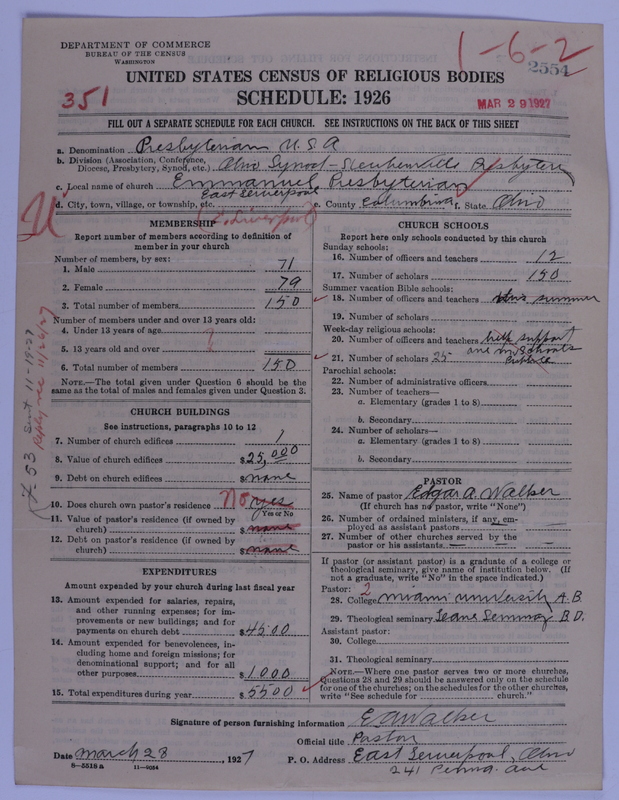 DEPARTMENT OF COMMERCE
BUREAU OF THE CENSUS
WASHINGTON
1-6-2
2554
UNITED STATES CENSUS OF RELIGIOUS BODIES
351
SCHEDULE: 1926
MAR 29 1927
FILL OUT A SEPARATE SCHEDULE FOR EACH CHURCH. SEE INSTRUCTIONS ON THE BACK OF THIS SHEET
a. Denomination Presbyterian U.S.A
b. Division (Association, Conference, Diocese, Presbytery, Synod, etc.) Ohio Synod - Steubenville Presbytery
c. Local name of church Emmanuel Presbyterian
d. City, town, village, or township, etc. East Liverpool
(E. Liverpool)
e. County Columbiana f. State Ohio
MEMBERSHIP
Report number of members according to definition of
member in your church
Number of members, by sex:
1. Male 71
2. Female 79
3. Total number of members 150
Number of members under and over 13 years old:
4. Under 13 years of age
?
5. 13 years old and over
6. Total number of members 150
NOTE.—The total given under Question 6 should be the
same as the total of males and females given under Question 3.
CHURCH BUILDINGS
See instructions, paragraphs 10 to 12
7. Number of church edifices 1
8. Value of church edifices $25,000
9. Debt on church edifices $none
10. Does church own pastor's residence No yes
Yes or No
11. Value of pastor's residence (if owned by
church) $none
12. Debt on pastor's residence (if owned by
church) $none
EXPENDITURES
Amount expended by your church during last fiscal year
13. Amount expended for salaries, repairs,
and other running expenses; for im-
provements or new buildings; and for
payments on church debt $4500
14. Amount expended for benevolences, in-
cluding home and foreign missions; for
denominational support; and for all
other purposes $1000
15. Total expenditures during year $5500
CHURCH SCHOOLS
Report here only schools conducted by this church
Sunday schools:
16. Number of officers and teachers 12
17. Number of scholars 150
Summer vacation Bible schools:
18. Number of officers and teachers this summer
19. Number of scholars
Week-day religious schools:
20. Number of officers and teachers help support
one in Schools
21. Number of scholars 25 Public
Parochial schools:
22. Number of administrative officers
23. Number of teachers—
a. Elementary (grades 1 to 8)
b. Secondary
24. Number of scholars—
a. Elementary (grades 1 to 8)
b. Secondary
PASTOR
25. Name of pastor Edgar A. Walker
(If church has no pastor, write "None")
26. Number of ordained ministers, if any, em-
ployed as assistant pastors —
27. Number of other churches served by the
pastor or his assistants — —
If pastor (or assistant pastor) is a graduate of a college or
theological seminary, give name of institution below. (If
not a graduate, write "No" in the space indicated.)
Pastor: 2
28. College Miami University A.B.
29. Theological seminary Lane Seminary B.D.
Assistant pastor:
30. College
31. Theological seminary
NOTE.—Where one pastor serves two or more churches,
Questions 28 and 29 should be answered only on the schedule
for one of the churches; on the schedules for the other churches,
write "See schedule for ........ church."
#53 Sent 11-19-27
Reply rec 11/26/27
Signature of person furnishing information E A Walker
Official title Pastor
Date March 28, 1927
P. O. Address East Liverpool, Ohio
8—5518 a 11—9054
241 Penna. Ave